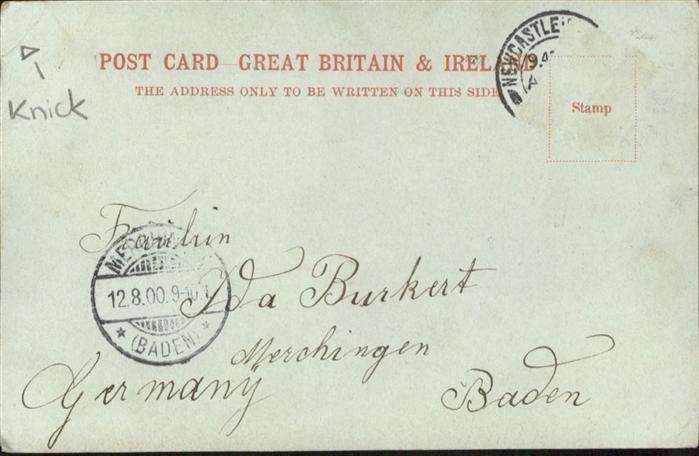 Knick
POST CARD GREAT BRITAIN & IRELAND
THE ADDRESS ONLY TO BE WRITTEN ON THIS SIDE
NEWCASTLE
Stamp
Fräulein
Ida Burkert
Merchingen
Germany
Baden
12.8.00.9-10
(BADEN)